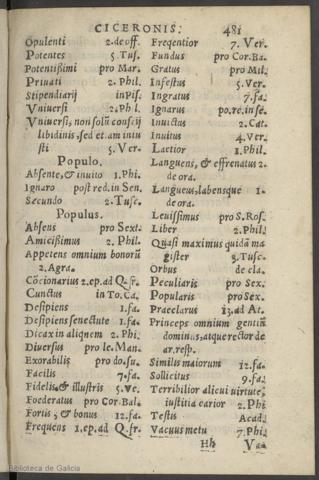 CICERONIS. 481
Opulenti 2. de off.
Potentes 5. Tus.
Potentißimi pro Mar.
Priuati 2. Phil.
Stipendiarij in Pis.
Vniuersi 2. Phil.
Vniuersi, non solũ conscij
libidinis, sed et. am iniu
sti 5. Ver.
Populo.
Absente, & inuito 1. Phi.
Ignaro post red. in Sen.
Secundo 2. Tusc.
Populus.
Absens pro Sext.
Amicißimus 2. Phil.
Appetens omnium bonorũ
2. Agra.
Cõcionarius 2. ep. ad Q. fr.
Cunctus in To. Ca.
Desipiens 1. fa.
Desipiens senectute 1. fa.
Dicax in aliquem 2. Ph.
Diuersus pro le. Man.
Exorabilis pro do. su.
Facilis 7. fa.
Fidelis, & illustris 5. Ve.
Foederatus pro Cor. Bal.
Fortis, & bonus 12. fa.
Frequens 1. ep. ad Q. fr.
Freqentior 7. Ver.
Fundus pro Cor. Ba.
Gratus pro Mil.
Infestus 5. Ver.
Ingratus 7. fa.
Ignarus po. re. in se.
Inuictus 2. Cat.
Inuitus 4. Ver.
Laetior 1. Phil.
Languens, & effrenatus 2.
de ora.
Langueus, labensque 1.
de ora.
Leuissimus pro S. Ros.
Liber 2. Phil.
Quasi maximus quidã ma
gister 3. Tusc.
Orbus de cla.
Peculiaris pro Sex.
Popularis pro Sex.
Praeclarus 13. ad At.
Princeps omnium gentiũ
dominus, atque rector de
ar. resp.
Similis maiorum 12. fa.
Sollicitus 9. fa.
Terribilior alicui uirtute,
iustitia carior 2. Phi
Testis Acad.
Vacuus metu 7. Phi.
Hh Va=
Biblioteca de Galicia